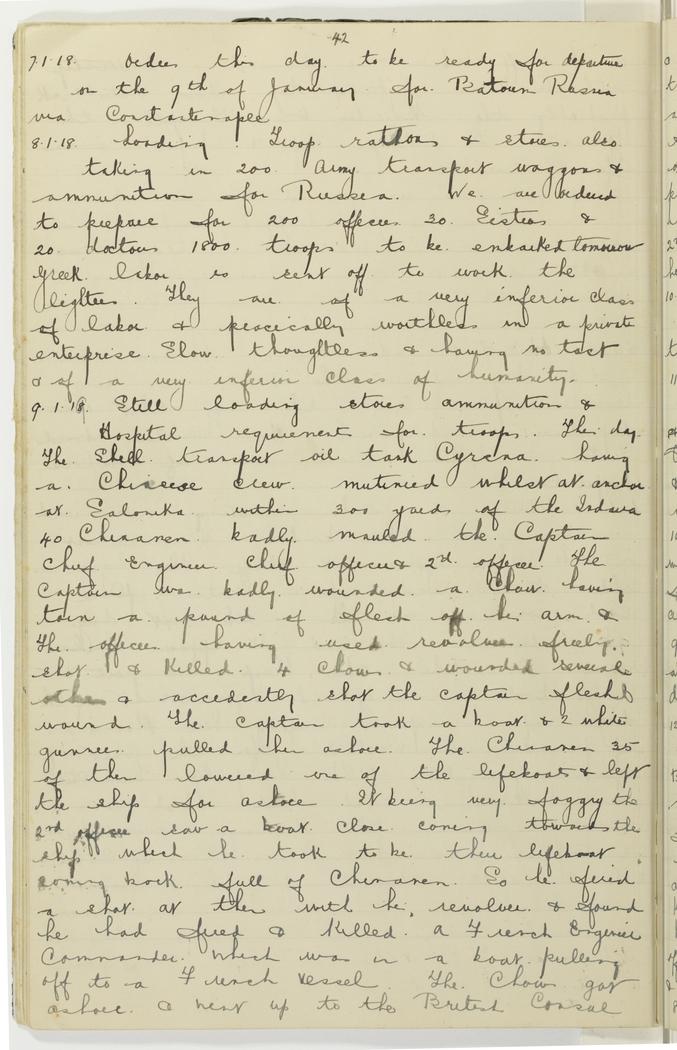 42
7.1.18. Orders this day. to be ready for departure
on the 9th of January. for. Batoum Russia
via Constantinaple
8.1.18. Loading. Troop rathons & stores. also.
taking in 200. Army transport waggons &
ammunition for Russia. We are ordered
to prepare for 200 officers. 20. Sisters &
20. doctors 1800. troops to be. embarked tomorrow
Greek. labor is sent off. to work the
lighters. They are of a very inferior class
of labor & pracically worthless in a private
enterprise. Slow. thoughtless & having no tast
& of a very inferior class of humanity.
9.1.18. Still loading stores ammunition &
Hospital requirement for. troops. This day.
The. Shell. transport oil tank Cyrena. having
a. Chineese crew. mutinied whilst at. anchor
at. Salonika. within 300 yards of the Indarra
40 Chinamen. badly. mauled. the. Captain
Chief Engineer. Chief officer & 2nd officer. The
Captain was. badly wounded. a. Chow. having
torn a. pound of flesh off his arm. &
The. officers having used. revolvers. freely.
shot. & Killed. 4 Chows. & wounded several
others & accedently shot the captain flesh
wound. The. captain took a boat. & 2 white
gunners. pulled him ashore. The. Chinamen 35
of them lowered one of the lifeboats & left
the ship for ashore. It being very. foggry the
2nd officer saw a boat. close. coming towards the
ship. which he. took to be. their lifeboat
coming back. full of Chinamen. So he. fired
a shot. at them with his. revolver. & found
he had fired & Killed. a French Engineer
Commander. which was in a boat. pulling
off to a French vessel. The. Chows got
ashore. & went up to the British Consul